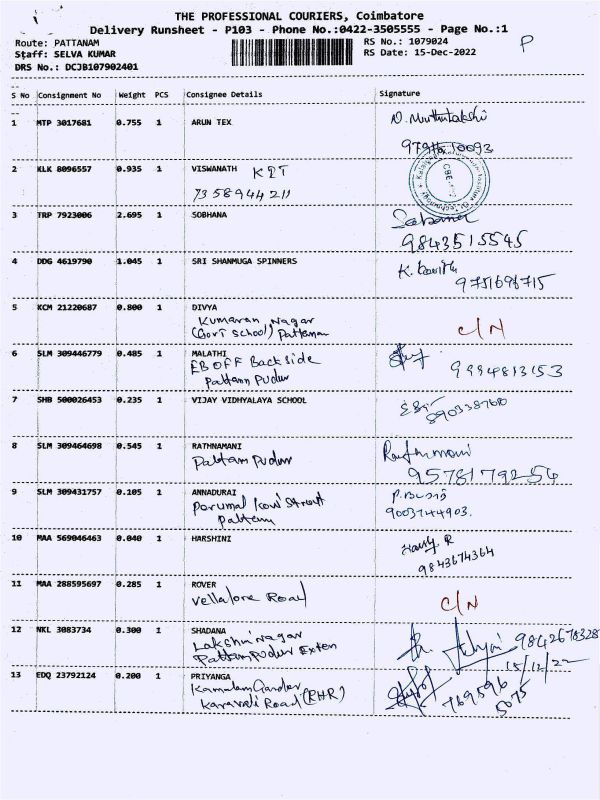 THE PROFESSIONAL COURIERS, Coimbatore
Delivery Runsheet - P103 - Phone No.:0422-3505555 - Page No.:1
Route: PATTANAM
Staff: SELVA KUMAR
DRS No.: DCJB107902401
RS No.: 1079024
RS Date: 15-Dec-2022
P
S No Consignment No Weight PCS Consignee Details Signature
1 MTP 3017681 0.755 1 ARUN TEX
2 KLK 8096557 0.935 1 VISWANATH KPT
7358944211
3 TRP 7923006 2.695 1 SOBHANA
9843515545
4 DDG 4619790 1.045 1 SRI SHANMUGA SPINNERS
9751698715
5 KCM 21220687 0.800 1 DIVYA
Kumaran Nagar
(Govt School) Pattanam
C/N
6 SLM 309446779 0.485 1 MALATHI
EB OFF Back side
Pattam Pudur
9994813153
7 SHB 500026453 0.235 1 VIJAY VIDHYALAYA SCHOOL
8 SLM 309464698 0.545 1 RATHNAMANI
Pattam Pudur
Rathnamani
9578179256
9 SLM 309431757 0.105 1 ANNADURAI
Perumal Kovil Street
Pattam
9003744903.
10 MAA 569046463 0.040 1 HARSHINI
9843674364
11 MAA 288595697 0.285 1 ROVER
Vellalore Road
C/N
12 NKL 3083734 0.300 1 SHADANA
Lakshmi Nagar
Pattam Pudur Exten
9842678328
15/12/22
13 EDQ 23792124 0.200 1 PRIYANGA
Karavali Road (RHR)
769596
5075